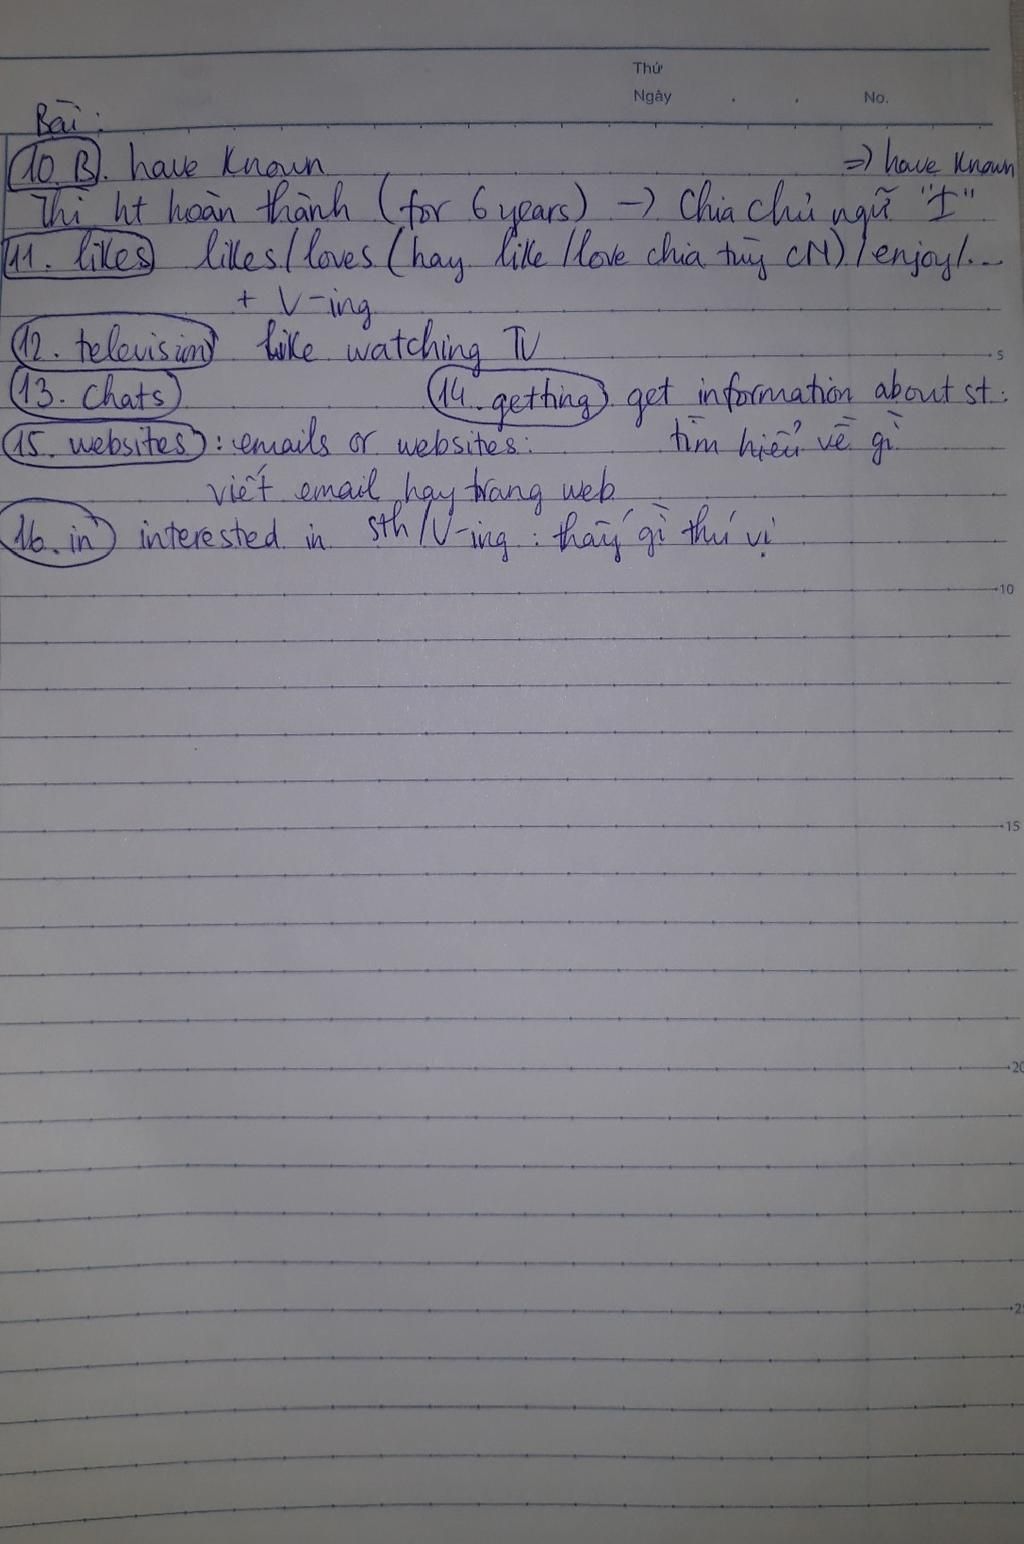 Thứ
Ngày . . No.
Bài:
10. B. have known => have known
Thì ht hoàn thành (for 6 years) -> Chia chủ ngữ "I"
11. likes likes/loves (hay like/love chia tùy CN)/enjoy/...
+ V-ing
12. television like watching TV
5
13. Chats 14. getting get information about st:
15. websites: emails or websites: tìm hiểu về gì
viết email hay trang web
16. in interested in sth/V-ing: thấy gì thú vị
10
15
20
25